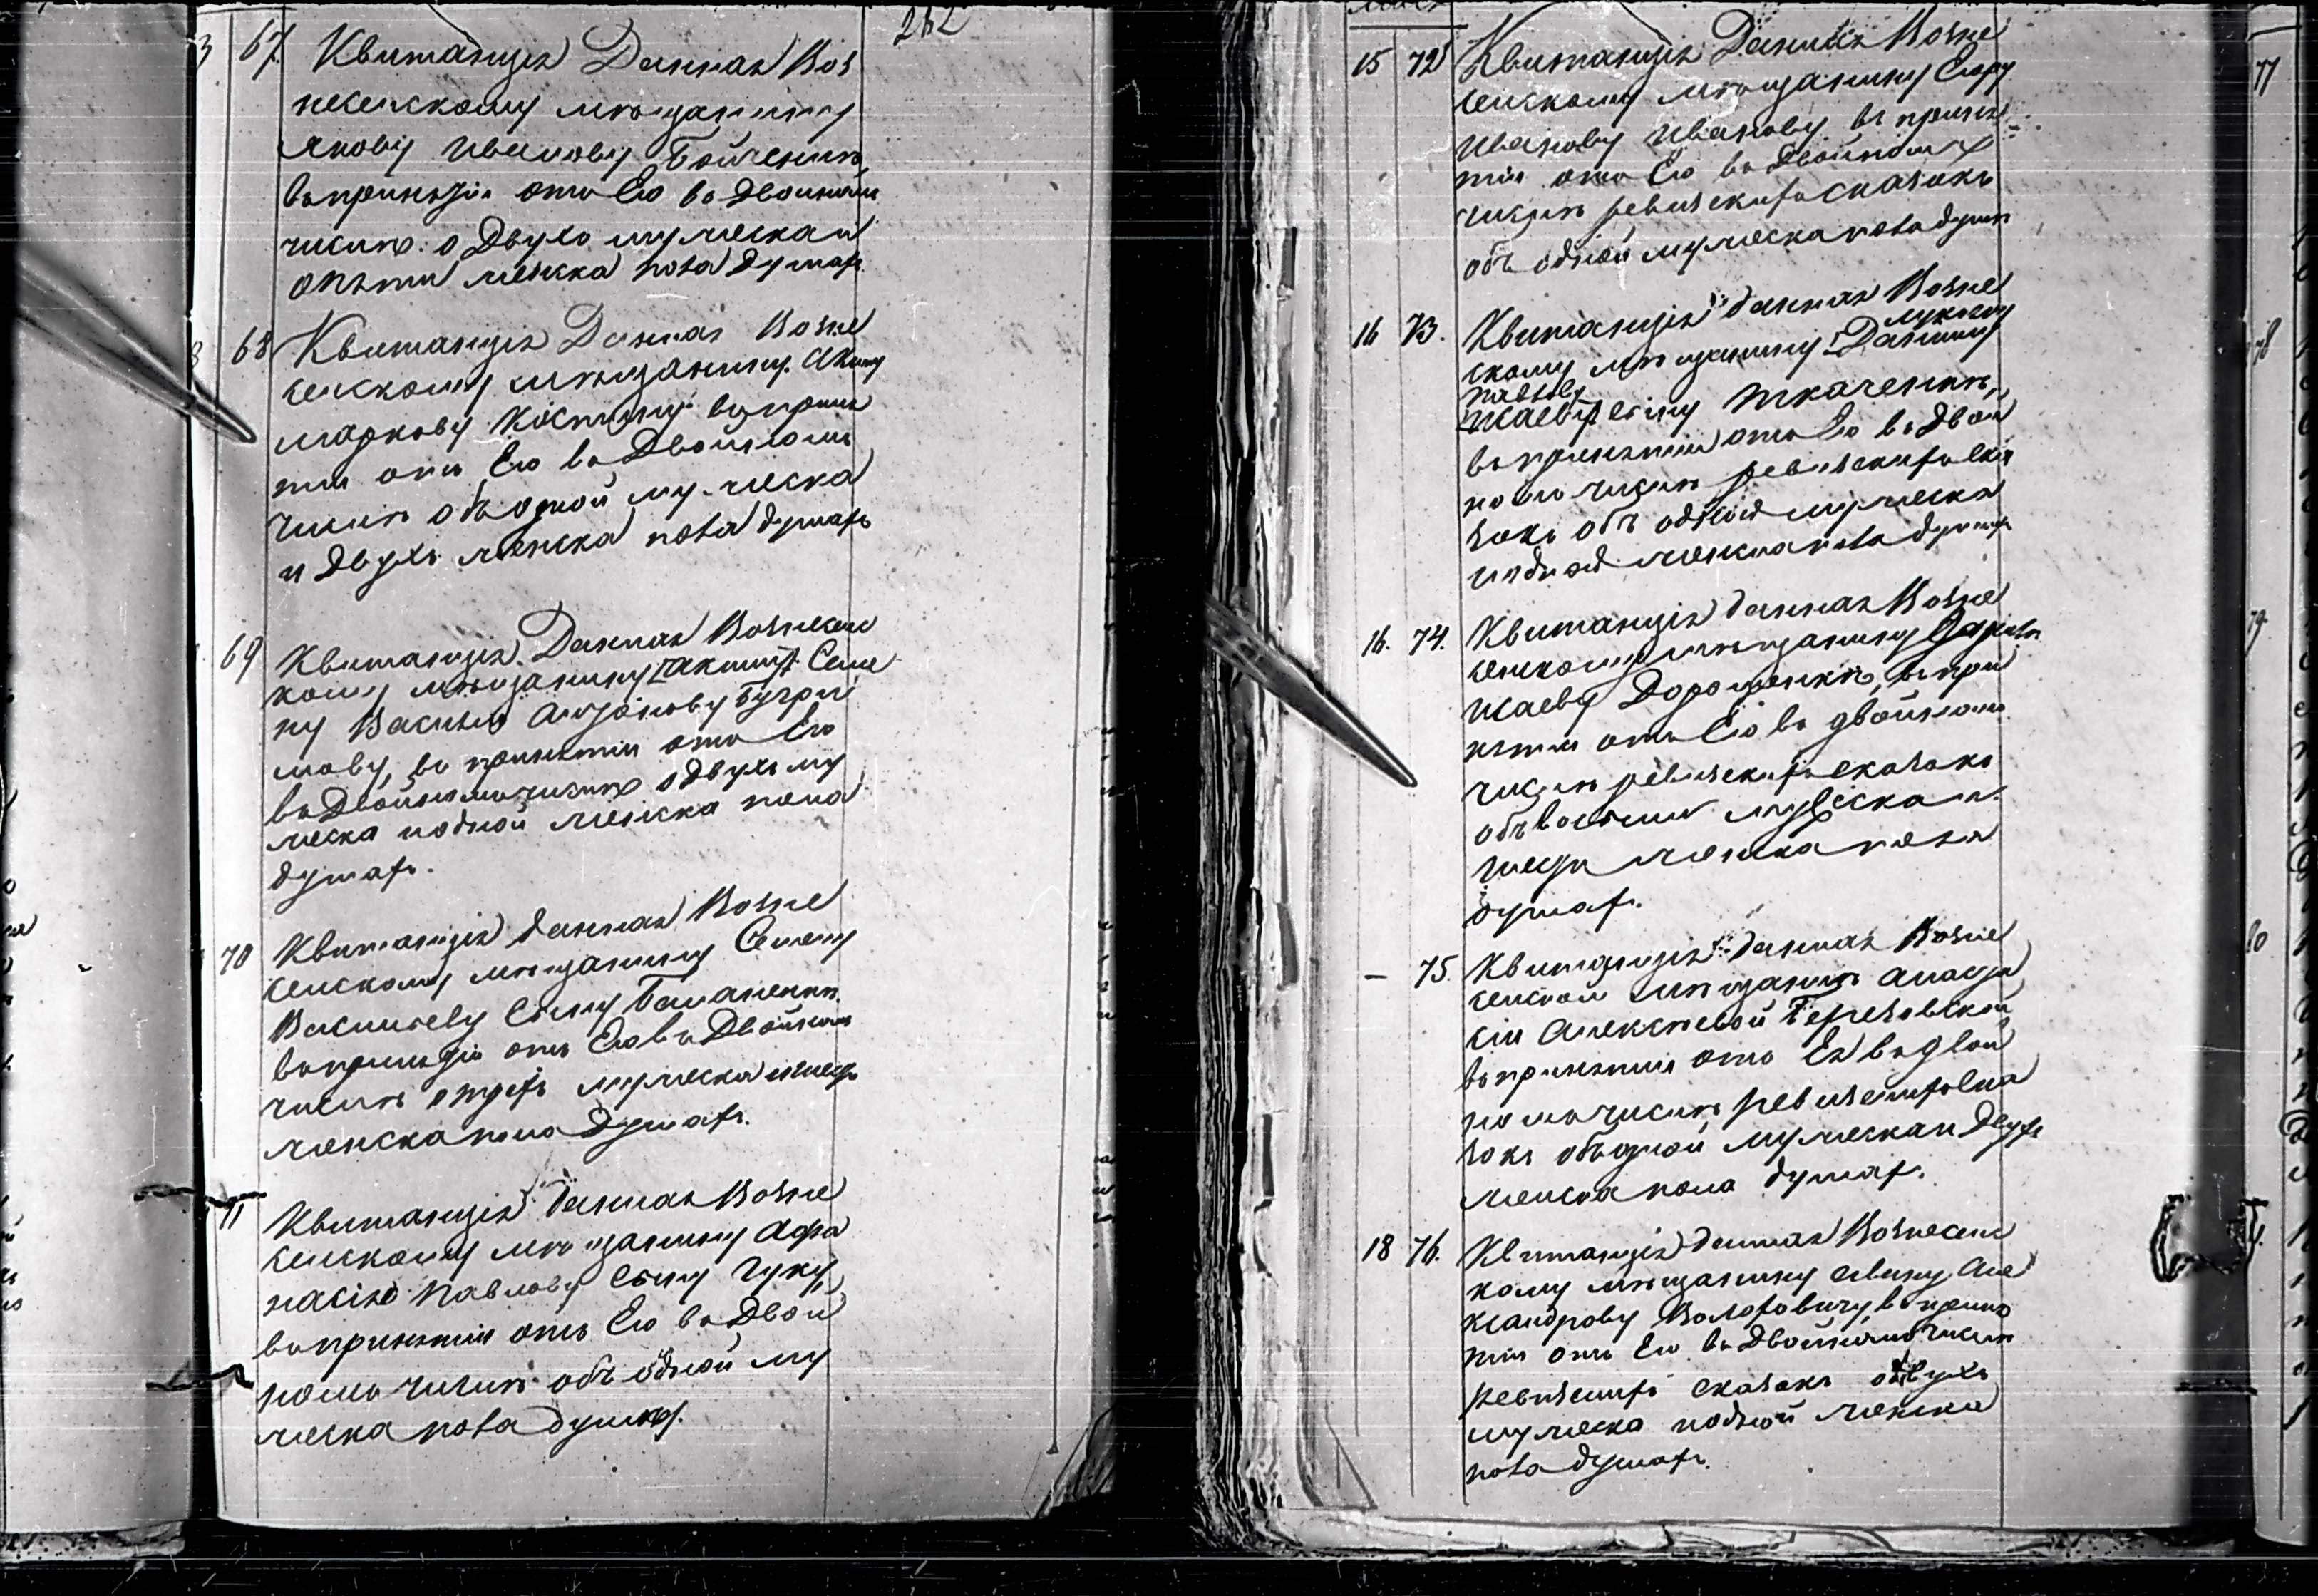 262
67. Квитанція Данная Воз
несенскому мѣщанину
Якову Иванову Бойченкѣ,
въ принятіи отъ Его въ Двойномъ
числѣ о Двухъ мужеска и
опяти женска пола Душахъ
68 Квитанція Данная Возне
сенскому мѣщанину Акиму
Маркову Костину въ приня
тіи отъ Его въ Двойномъ
числѣ объ одной мужеска
и Двухъ женска пола душахъ
69 Квитанція Данная Вознесенс
кому мѣщанину
ну Василью
въ принятіи отъ Его
въ Двойномъ числѣ о Двухъ му
жеска и одной женска пола
душахъ.
70 Квитанція данная Возне
сенскому мѣщанину Семену
Васильеву сыну
въ принятіи отъ Его въ Двойномъ
числѣ отрехъ мужеска и
женска пола Душахъ.
71 Квитанція данная Возне
сенскому мѣщанину Афа
насію Павлову сыну Чуку,
въ принятіи отъ Его въ Двой
номъ числѣ объ одной му
жеска пола душах.
15 72 Квитанція Данная Возне
сенскому мѣщанину Егору
Иванову Иванову въ приня
тіи отъ Его въ Двойномъ
числѣ ревизскихъ сказокъ
объ одной мужеска пола душѣ
16 73. Квитанція данная Возне
скому мѣщанину
Павлову
сыну Ткаченкѣ,
въ принятіи отъ Его въ Двой
номъ числѣ ревизскихъ ска
зокъ объ одной мужеска
и одной женска пола душахъ
16. 74. Квитанція данная Возне
сенскому мѣщанину
Дорошенкѣ, въ при
нятіи отъ Его въ двойномъ
числѣ ревизскихъ сказокъ
объ восьми мужеска и
шести женска пола
душахъ.
— 75. Квитанція данная Возне
сенской мѣщанкѣ Анаста
сіи Алексѣевой Березовской
въ принятіи отъ Ея въ двой
номъ числѣ ревизскихъ ска
зокъ объ одной мужеска и Двухъ
женска пола душах.
18 76. Квитанція данная Вознесенс
кому мѣщанину Ивану Але
ксандрову въ приня
тіи отъ Его въ Двойномъ числѣ
ревизскихъ сказокъ о двухъ
мужеска и одной женска
пола душахъ.
77
78
79
80